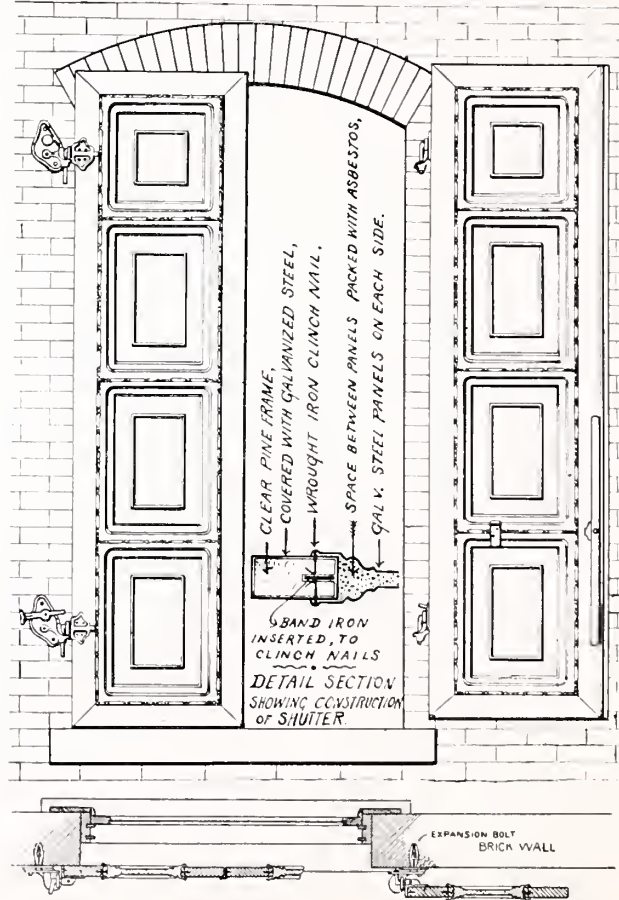 CLEAR PINE FRAME,
COVERED WITH GALVANIZED STEEL,
WROUGHT IRON CLINCH NAIL.
SPACE BETWEEN PANELS PACKED WITH ASBESTOS,
GALV. STEEL PANELS ON EACH SIDE.
BAND IRON
INSERTED, TO
CLINCH NAILS
DETAIL SECTION
SHOWING CONSTRUCTION
OF SHUTTER.
EXPANSION BOLT
BRICK WALL